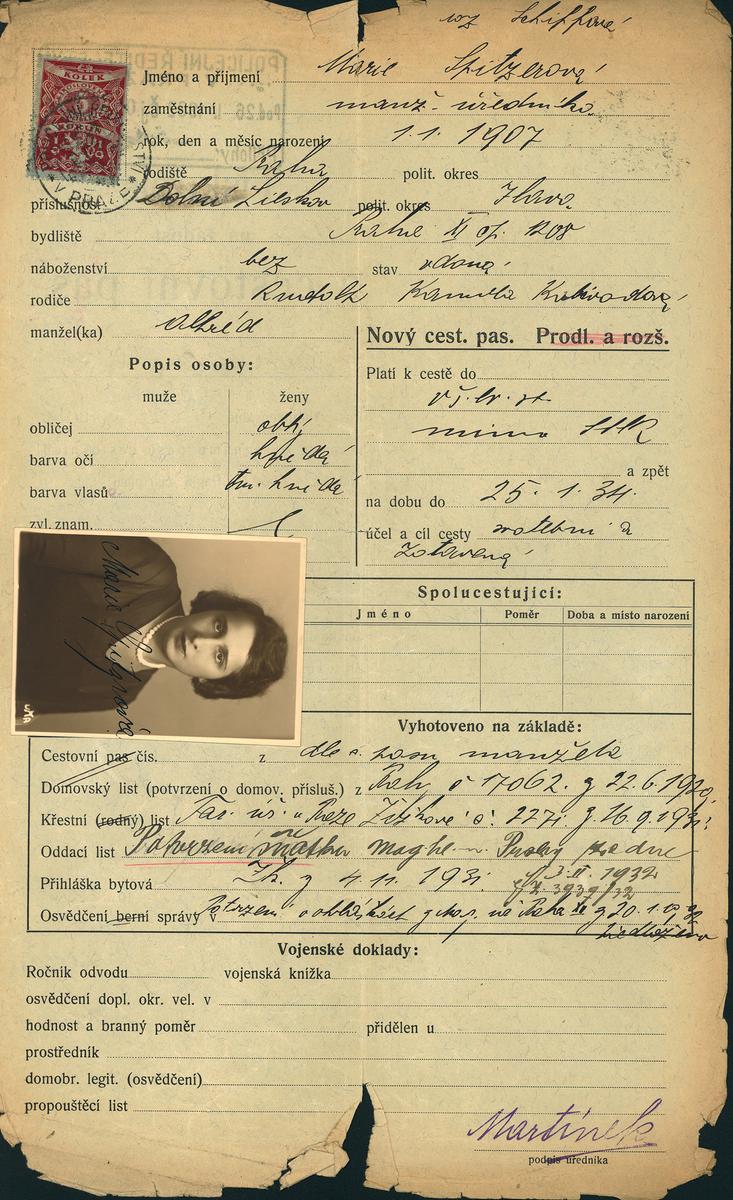 roz Schiffová
KOLEK
KORUN
V PRAZE
POLICEJNÍ ŘEDITEL
Jméno a příjmení Marie Spitzerová
zaměstnání manž. úředníka
rok, den a měsíc narození 1.1.1907
rodiště Praha polit. okres
příslušnost Dolní Lieskov polit. okres Ilava
bydliště Praha XI čp. 1208
náboženství bez stav vdaná
rodiče Rudolf Kamila
manžel(ka) Alfréd
Nový cest. pas. Prodl. a rozš.
Popis osoby:
Platí k cestě do
muže ženy
vš. ev. st.
obličej obl.
mimo SSR
barva očí hnědá
a zpět
barva vlasů tm. hnědá
na dobu do 25.1.34.
zvl. znam.
účel a cíl cesty svatební a
zotavená
Marie Spitzerová
Spolucestující:
Jméno Poměr Doba a místo narození
Vyhotoveno na základě:
Cestovní pas čís. z dle c. pasu manžela
Domovský list (potvrzení o domov. přísluš.) z č 17062. z 22.6.1920
Křestní (rodný) list Far. úř. v Praze Žižkově č. 227 z 16.9.1931
Oddací list Potvrzení sňatku v Praze ze dne
3.II.1932
Přihláška bytová z 4.11.1931 3939/32
Osvědčení berní správy v Potvrzení Praha XI z 20.1.1932
předloženo
Vojenské doklady:
Ročník odvodu vojenská knížka
osvědčení dopl. okr. vel. v
hodnost a branný poměr přidělen u
prostředník
domobr. legit. (osvědčení)
propouštěcí list
Martínek
podpis úředníka